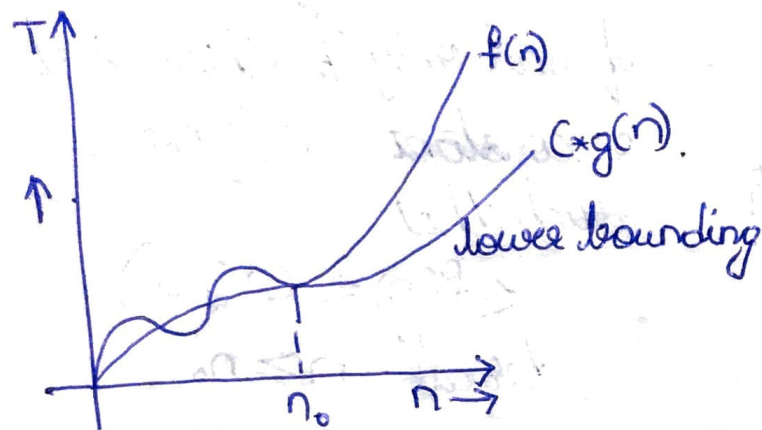 T
f(n)
C*g(n).
lower bounding
n₀
n